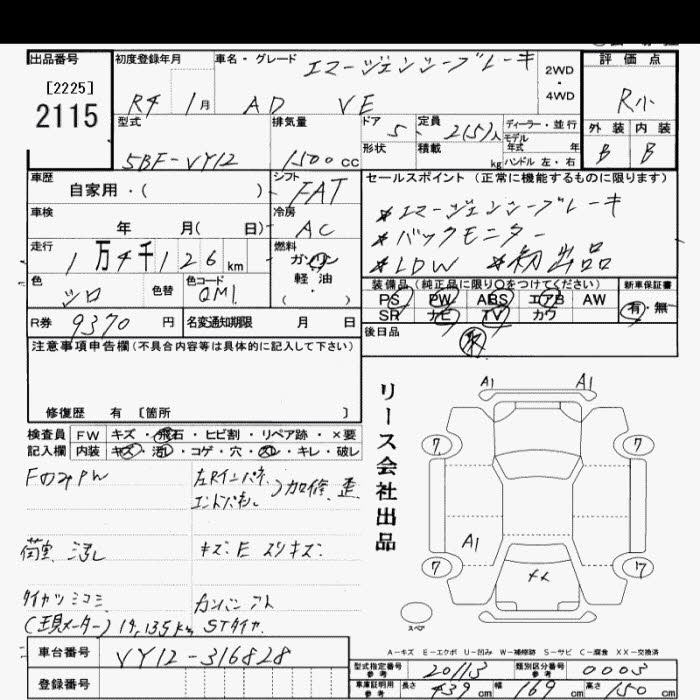 出品番号
[2225]
2115
初度登録年月 R4 1月
車名・グレード エマージェンシーブレーキ
AD VE
2WD
・
4WD
評価点
R小
外装 内装
B B
型式 5BF-VY12
排気量 1500cc
ドア 5
定員 2(5)人
ディーラー・並行
モデル年式 年
形状
積載 kg
ハンドル 左・右
車歴 自家用・( )
シフト FAT
車検 年 月( 日)
冷房 AC
走行 1万4千126km
燃料 ガソリン
軽油・
( )
色 シロ
色替
色コード QM1
R券 9370円
名変通知期限 月 日
セールスポイント(正常に機能するものに限ります)
*エマージェンシーブレーキ
*バックモニター
*LDW *初出品
装備品(純正品に限り○をつけてください)
PS PW ABS エアB AW
SR ナビ TV カワ
新車保証書
有・無
後日品
取
注意事項申告欄(不具合内容等は具体的に記入して下さい)
修復歴 有 [箇所 ]
検査員 FW キズ・飛石・ヒビ割・リペア跡・×要
記入欄 内装 キズ・汚・コゲ・穴・スレ・キレ・破レ
FのみPW
左Rインパネ
エンドパネル )加修、歪
荷室 汚レ
キズ・E スリキズ
タイヤツミコミ
カンバンアト
(現メーター)19,135km STタイヤ
車台番号 VY12-316828
登録番号
リース会社出品
A1 A1
7 7
A1
7 メス 7
スペア
A-キズ E-エクボ U-凹み W-補修跡 S-サビ C-腐食 XX-交換済
型式指定番号 参考 20113
類別区分番号 参考 0003
車庫証明用 参考 長さ 439cm 幅 169cm 高さ 150cm